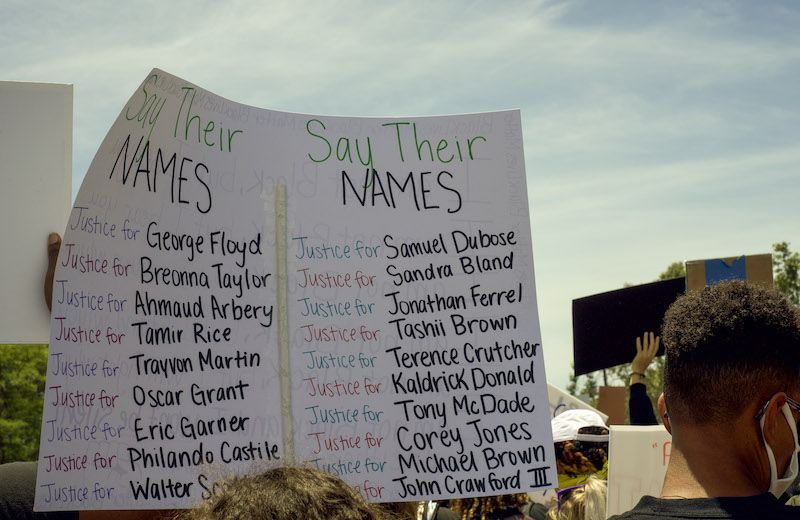 Say Their
NAMES
Justice for George Floyd
Justice for Breonna Taylor
Justice for Ahmaud Arbery
Justice for Tamir Rice
Justice for Trayvon Martin
Justice for Oscar Grant
Justice for Eric Garner
Justice for Philando Castile
Justice for Walter
Say Their
NAMES
Justice for Samuel Dubose
Justice for Sandra Bland
Justice for Jonathan Ferrel
Justice for Tashii Brown
Justice for Terence Crutcher
Justice for Kaldrick Donald
Justice for Tony McDade
Justice for Corey Jones
Justice for Michael Brown
for John Crawford III